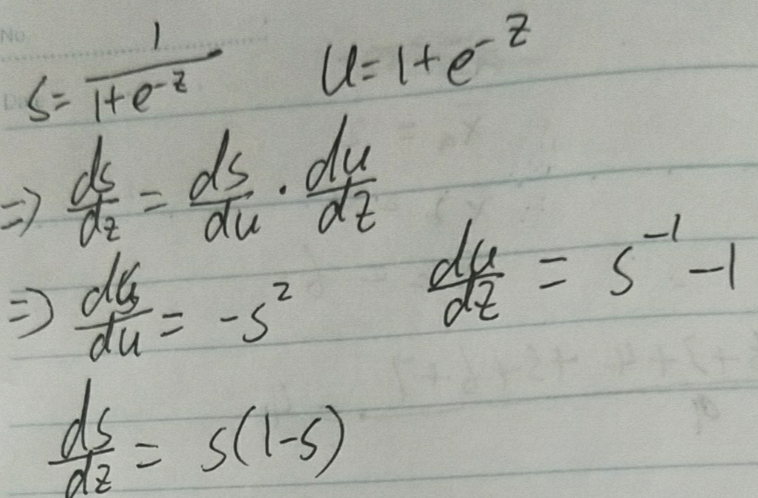 No.
s = 1/(1+e^-z)    u = 1+e^-z
⇒ ds/dz = ds/du · du/dz
⇒ ds/du = -s^2    du/dz = s^-1 - 1
ds/dz = s(1-s)